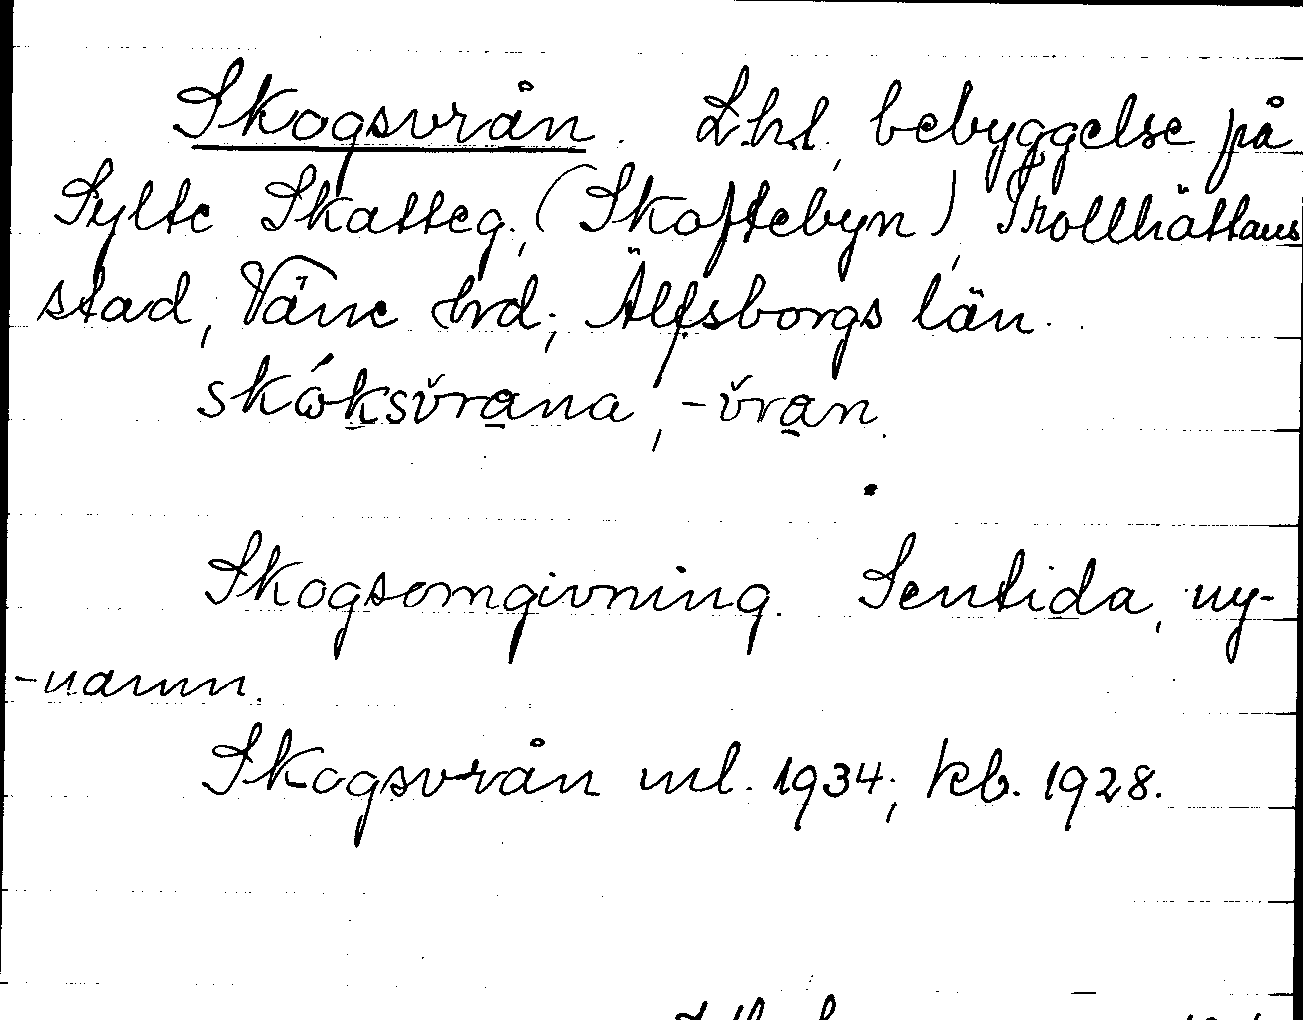 Skogsvrån. Lhl, bebyggelse på
Sylte Skatteg, (Skoftebyn), Trollhättans
stad, Väne hrd; Älfsborgs län.
skóksv̌rana, -v̌ran.
Skogsomgivning. Sentida, ny-
-namn.
Skogsvrån ml. 1934; kb. 1928.